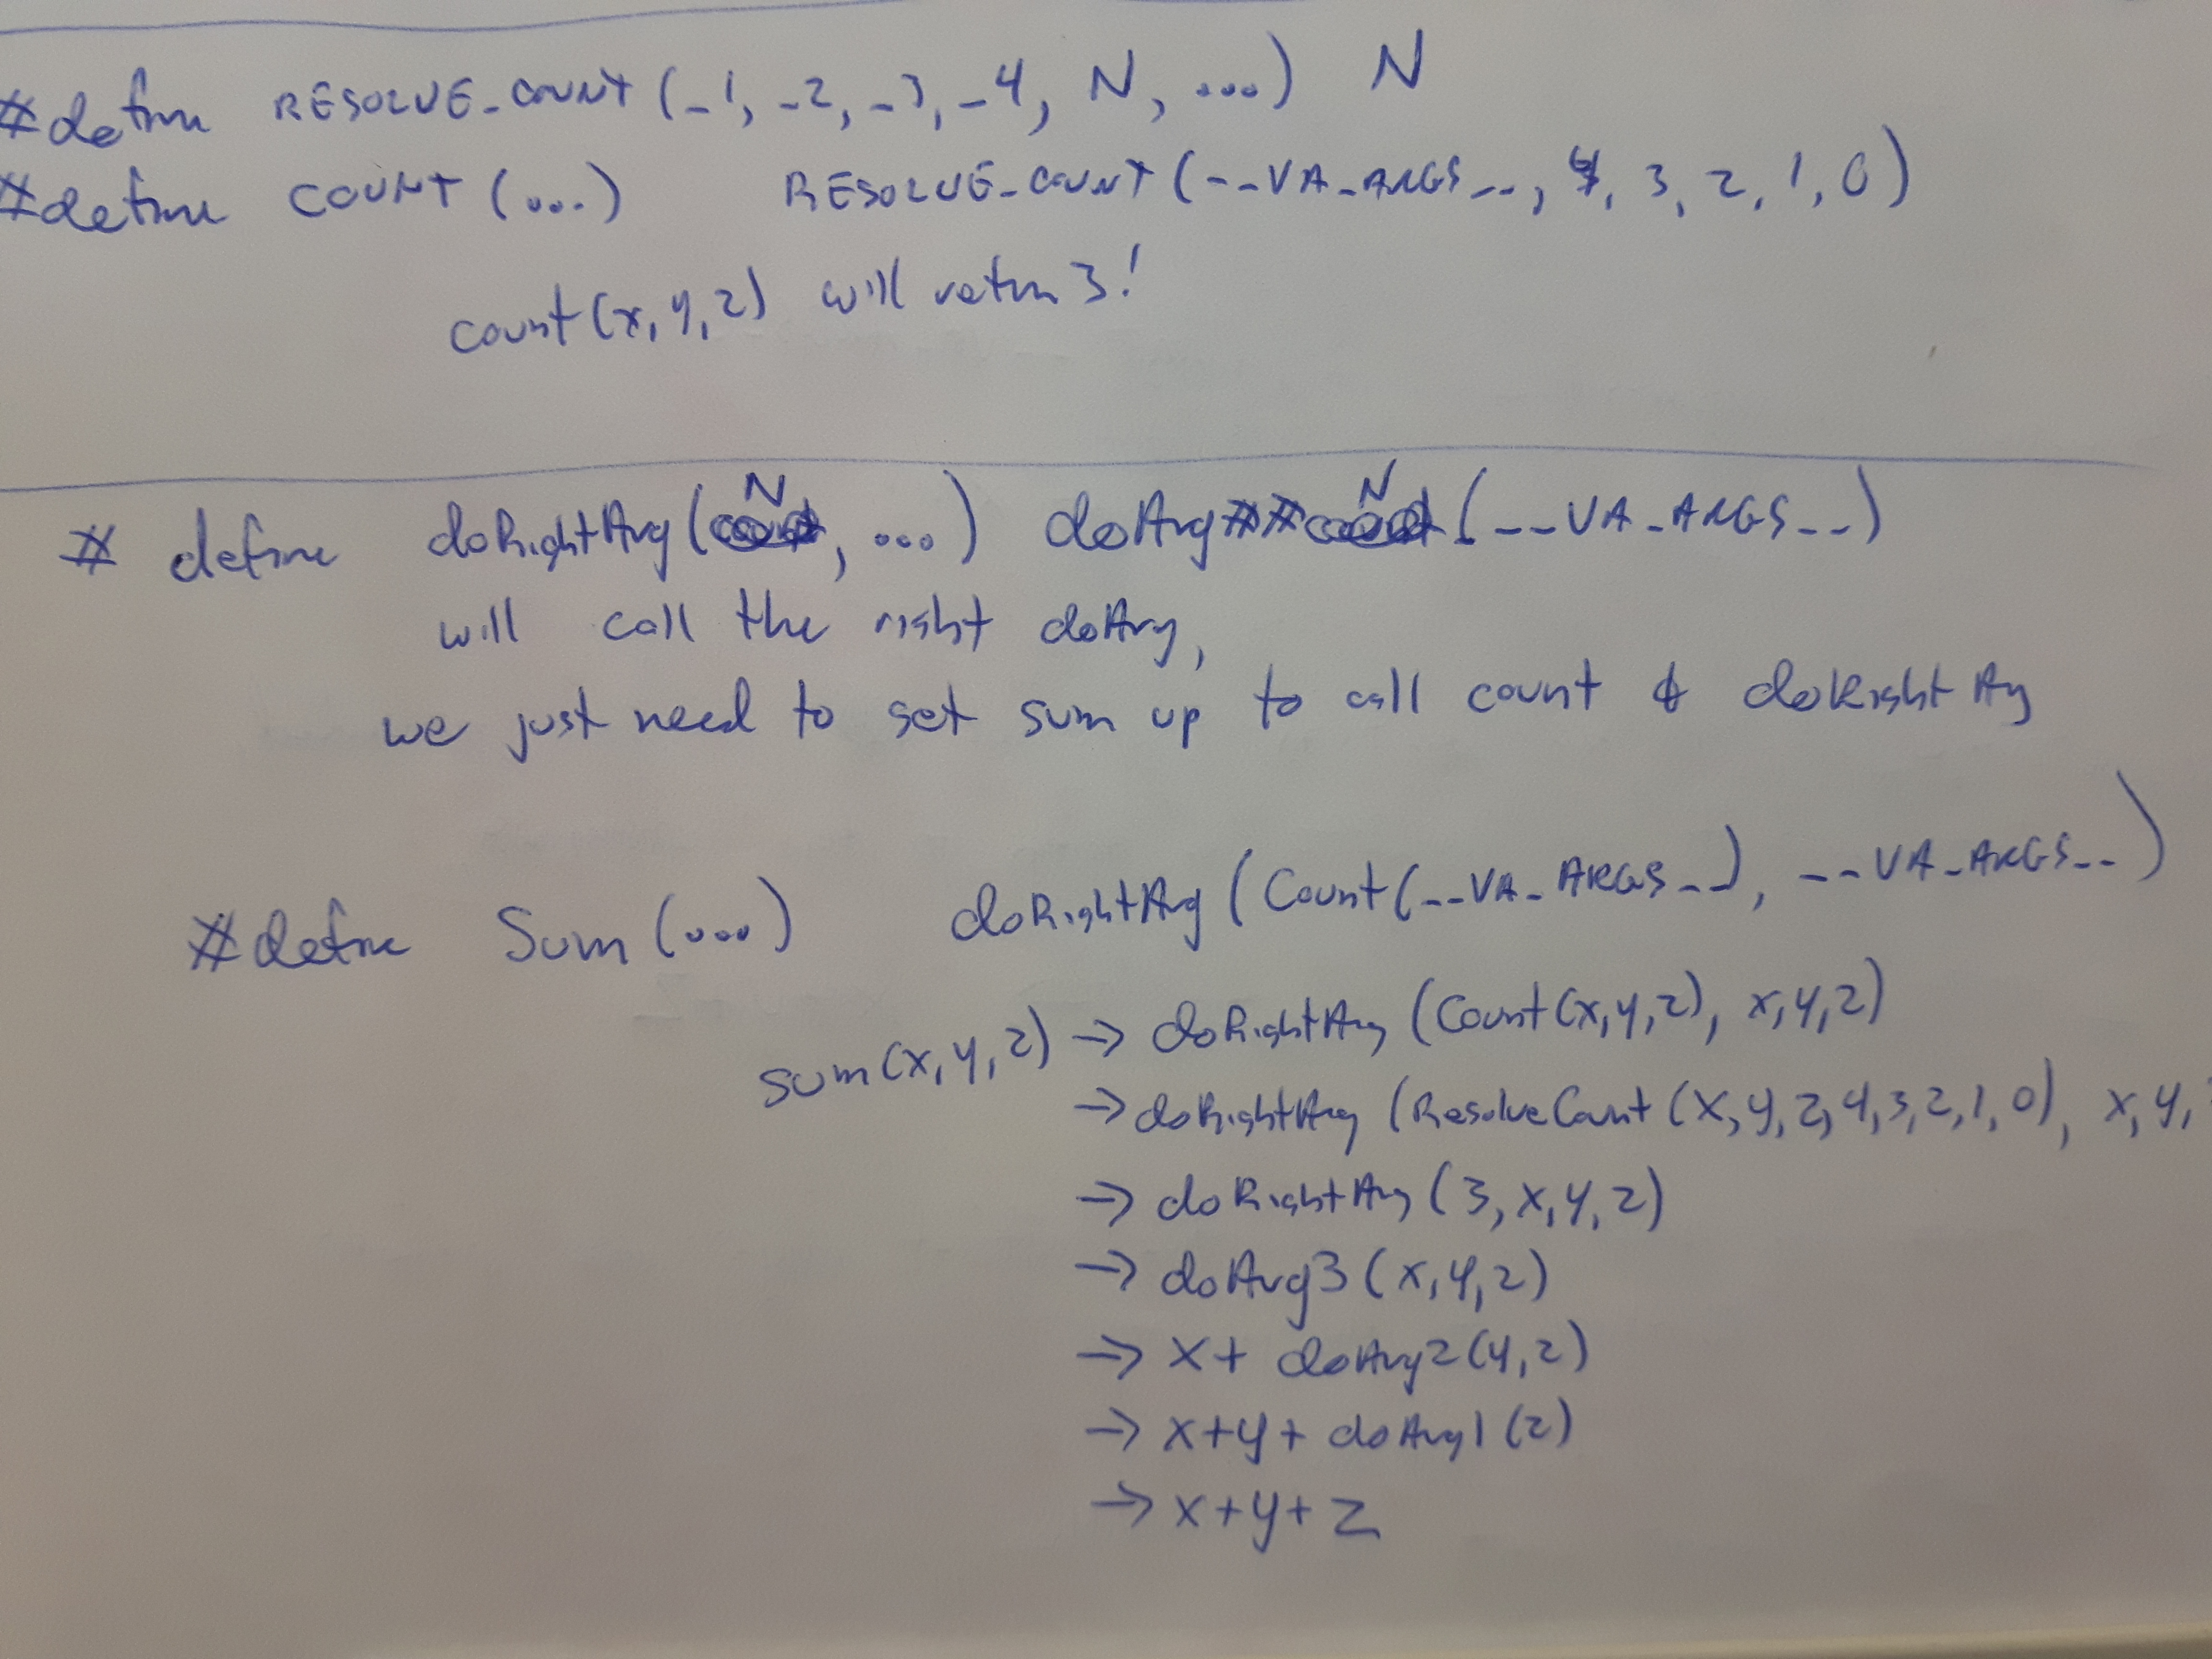 #define RESOLVE_COUNT(_1, _2, _3, _4, N, ...) N
#define COUNT(...) RESOLVE_COUNT(__VA_ARGS__, 4, 3, 2, 1, 0)
count(x, y, z) will return 3!
# define doRightArg(N, ...) doArg##N(__VA_ARGS__)
will call the right doArg,
we just need to set sum up to call count & doRightArg
#define Sum(...) doRightArg(Count(__VA_ARGS__), __VA_ARGS__)
sum(x, y, z) → doRightArg(Count(x,y,z), x,y,z)
→ doRightArg(ResolveCount(x,y,z,4,3,2,1,0), x,y,
→ doRightArg(3,x,y,z)
→ doArg3(x,y,z)
→ x+ doArg2(y,z)
→ x+y+ doArg1(z)
→ x+y+z